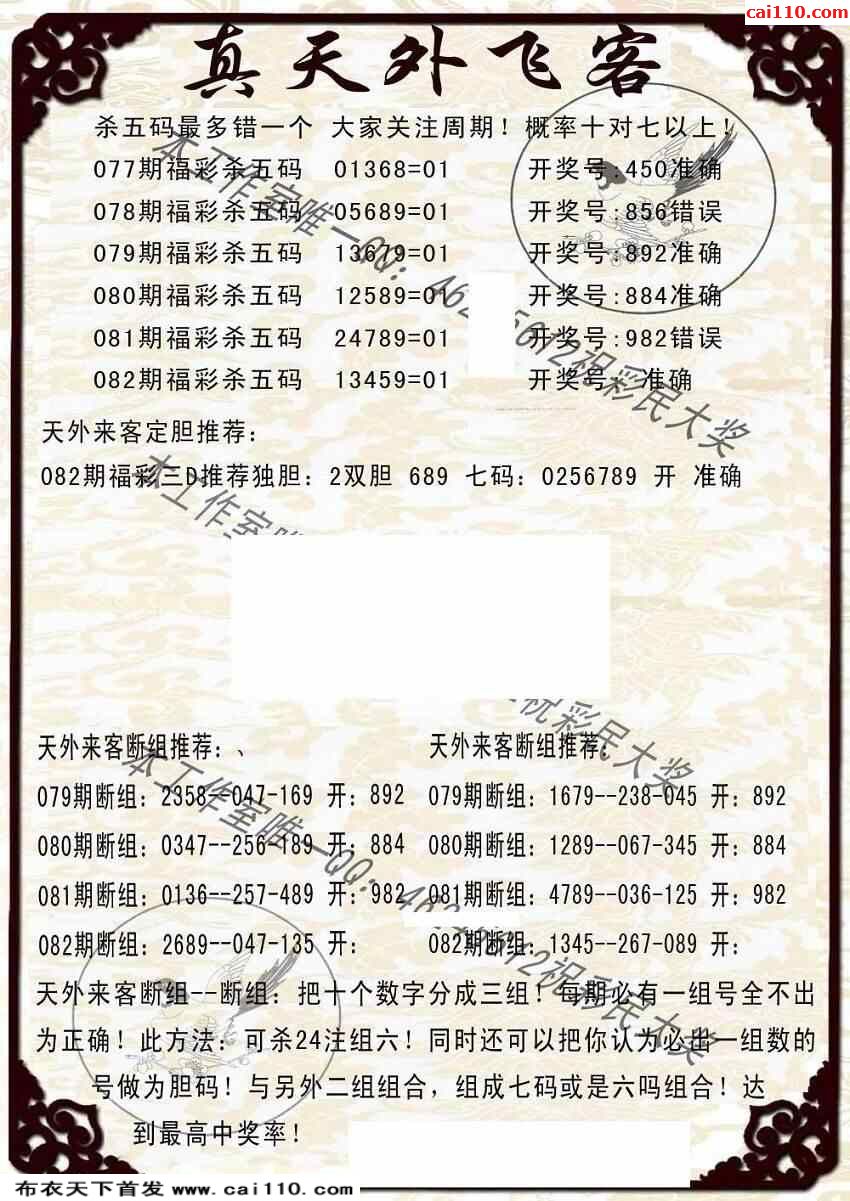 cai110.com
真天外飞客
杀五码最多错一个 大家关注周期！概率十对七以上！
077期福彩杀五码 01368=01 开奖号:450准确
078期福彩杀五码 05689=01 开奖号:856错误
079期福彩杀五码 13679=01 开奖号:892准确
080期福彩杀五码 12589=01 开奖号:884准确
081期福彩杀五码 24789=01 开奖号:982错误
082期福彩杀五码 13459=01 开奖号: 准确
天外来客定胆推荐：
082期福彩三D推荐独胆：2双胆 689 七码：0256789 开 准确
天外来客断组推荐：、
079期断组：2358--047-169 开：892
080期断组：0347--256-189 开：884
081期断组：0136--257-489 开：982
082期断组：2689--047-135 开：
天外来客断组推荐：
079期断组：1679--238-045 开：892
080期断组：1289--067-345 开：884
081期断组：4789--036-125 开：982
082期断组：1345--267-089 开：
天外来客断组--断组：把十个数字分成三组！每期必有一组号全不出
为正确！此方法：可杀24注组六！同时还可以把你认为必出一组数的
号做为胆码！与另外二组组合，组成七码或是六吗组合！达
到最高中奖率！
本工作室唯一QQ：
祝彩民大奖
本工作室唯
祝彩民大奖
本工作室唯一QQ：
祝彩民大奖
布衣天下首发 www.cai110.com